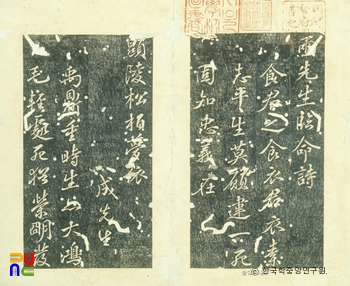 先生臨命詩
食君之食衣君衣素
志平生莫願違一死
固知忠義在
顯陵松柏夢依
成先生
禹鼎重時生亦大鴻
毛輕處死猶榮明發
ⓒ 한국학중앙연구원